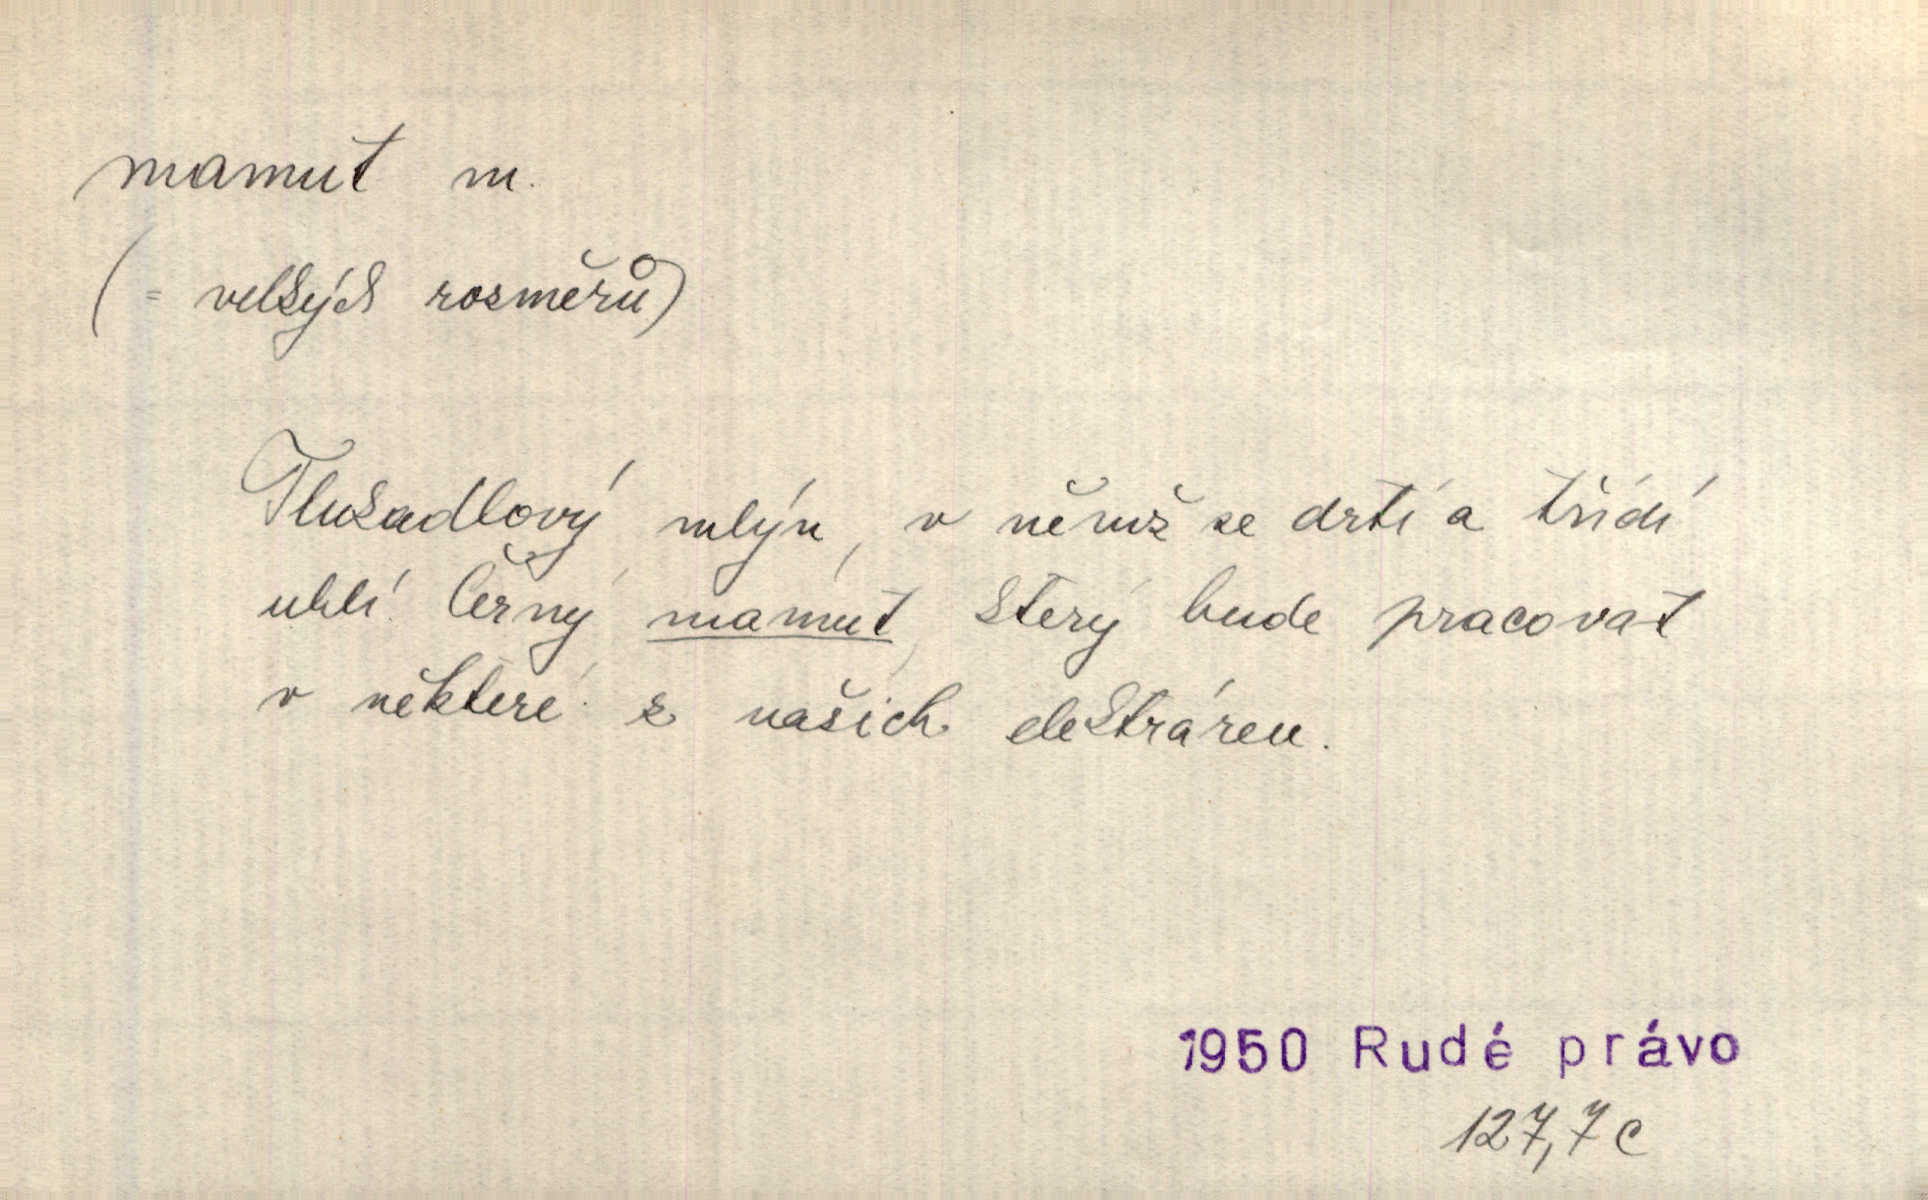 mamut m.
(= velkých rozměrů)
Tlukadlový mlýn, v němž se drtí a třídí
uhlí. Černý mamut, který bude pracovat
v některé z našich elektráren.
1950 Rudé právo
127,7 c